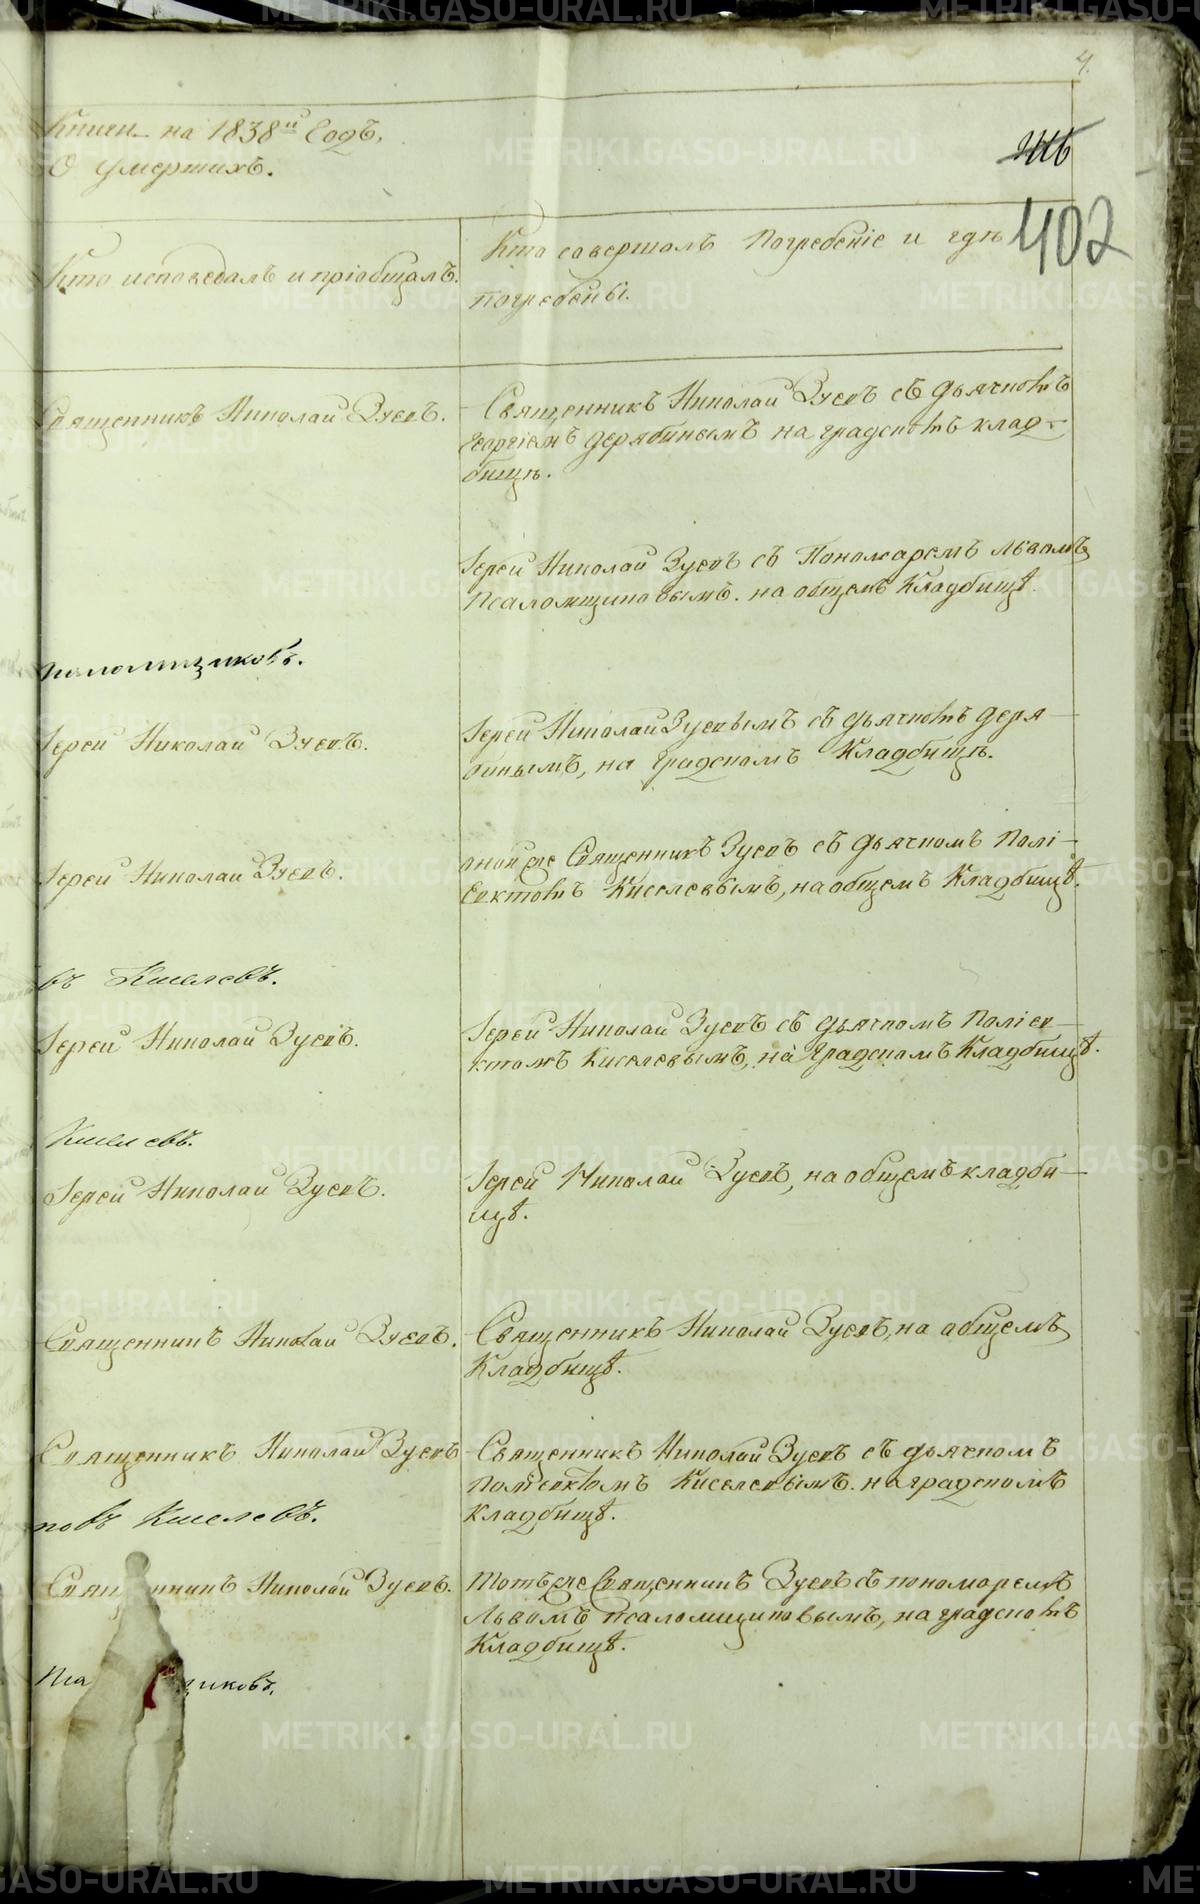 4.
Книги на 1838й Годъ,
О умершихъ.
402
Кто исповедалъ и пріобщалъ.
Кто совершалъ Погребеніе и гдѣ
погребены.
Священникъ Николай Зуевъ.
Священникъ Николай Зуевъ съ дьячкомъ
Георгіемъ Дерябинымъ на градскомъ клад-
бищѣ.
Іерей Николай Зуевъ съ Пономаремъ Львомъ
Псаломщиковымъ. на общемъ Кладбищѣ.
паломщиковъ.
Іерей Николай Зуевъ.
Іерей Николай Зуевымъ съ дьячкомъ Деря-
бинымъ, на градскомъ Кладбищѣ.
Іерей Николай Зуевъ.
оной же Священникъ Зуевъ съ дьячкомъ Полі-
евктомъ Киселевымъ, на общемъ Кладбищѣ.
въ Киселевъ.
Іерей Николай Зуевъ.
Іерей Николай Зуевъ съ дьячкомъ Поліев-
ктомъ Киселевымъ, на градскомъ Кладбищѣ.
Киселевъ.
Іерей Николай Зуевъ.
Іерей Николай Зуевъ, на общемъ кладби-
щѣ.
Священникъ Николай Зуевъ.
Священникъ Николай Зуевъ, на общемъ
Кладбищѣ.
Священникъ Николай Зуевъ
Священникъ Николай Зуевъ съ дьячкомъ
Поліевктомъ Киселевымъ. на градскомъ
кладбищѣ.
повъ Киселевъ.
Николай Зуевъ.
Тотъ же Священникъ Зуевъ съ пономаремъ
Львомъ Псаломщиковымъ, на градскомъ
Кладбищѣ.
Пса щиковъ.
METRIKI.GASO-URAL.RU